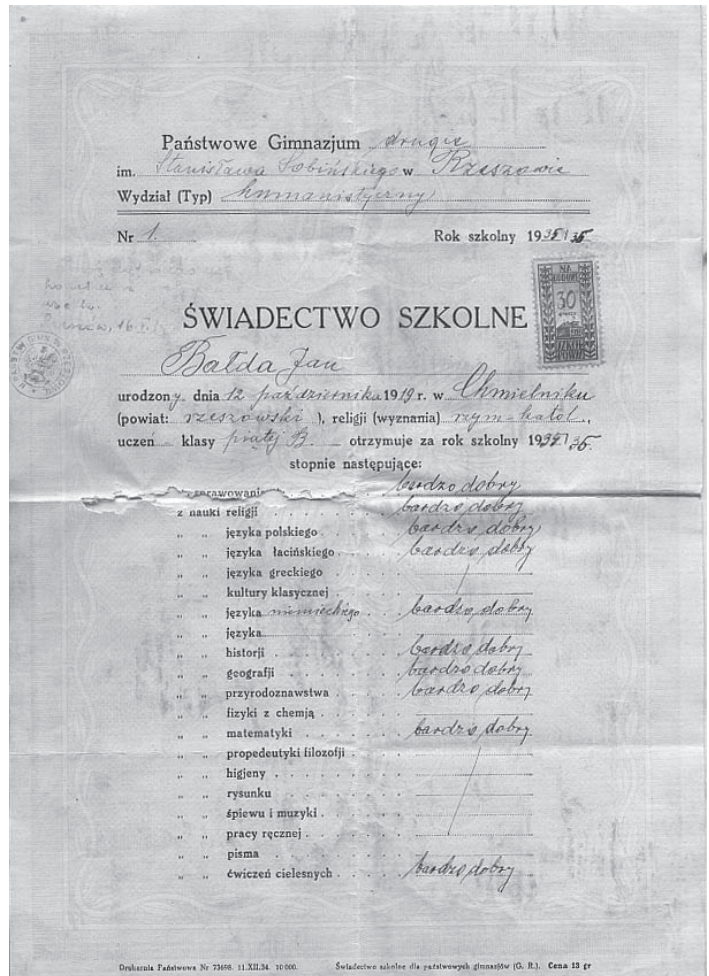 Państwowe Gimnazjum drugie
im. Stanisława Sobińskiego w Rzeszowie
Wydział (Typ) humanistyczny
Nr 1. Rok szkolny 1934/35.
NA
30
ŚWIADECTWO SZKOLNE
Bałda Jan
urodzony dnia 12 października 1919 r. w Chmielniku
(powiat: rzeszowski ), religji (wyznania) rzym-katol.,
uczeń - klasy piątej B. - otrzymuje za rok szkolny 1934/35.
stopnie następujące:
sprawowanie bardzo dobry
z nauki religji . . . . . . bardzo dobry
„ „ języka polskiego . . . . bardzo dobry
„ „ języka łacińskiego . . . . bardzo dobry
„ „ języka greckiego . . . .
„ „ kultury klasycznej . . . .
„ „ języka niemieckiego . . bardzo dobry
„ „ języka
„ „ historji . . . . . . bardzo dobry
„ „ geografji . . . . . . bardzo dobry
„ „ przyrodoznawstwa . . . . bardzo dobry
„ „ fizyki z chemją . . . .
„ „ matematyki . . . . . bardzo dobry
„ „ propedeutyki filozofji . . .
„ „ higjeny . . . . . . .
„ „ rysunku . . . . . . .
„ „ śpiewu i muzyki . . . . .
„ „ pracy ręcznej . . . . . .
„ „ pisma . . . . . . .
„ „ ćwiczeń cielesnych . . . . bardzo dobry
Drukarnia Państwowa Nr 73698. 11.XII.34. 10000. Świadectwo szkolne dla państwowych gimnazjów (G. R.). Cena 13 gr